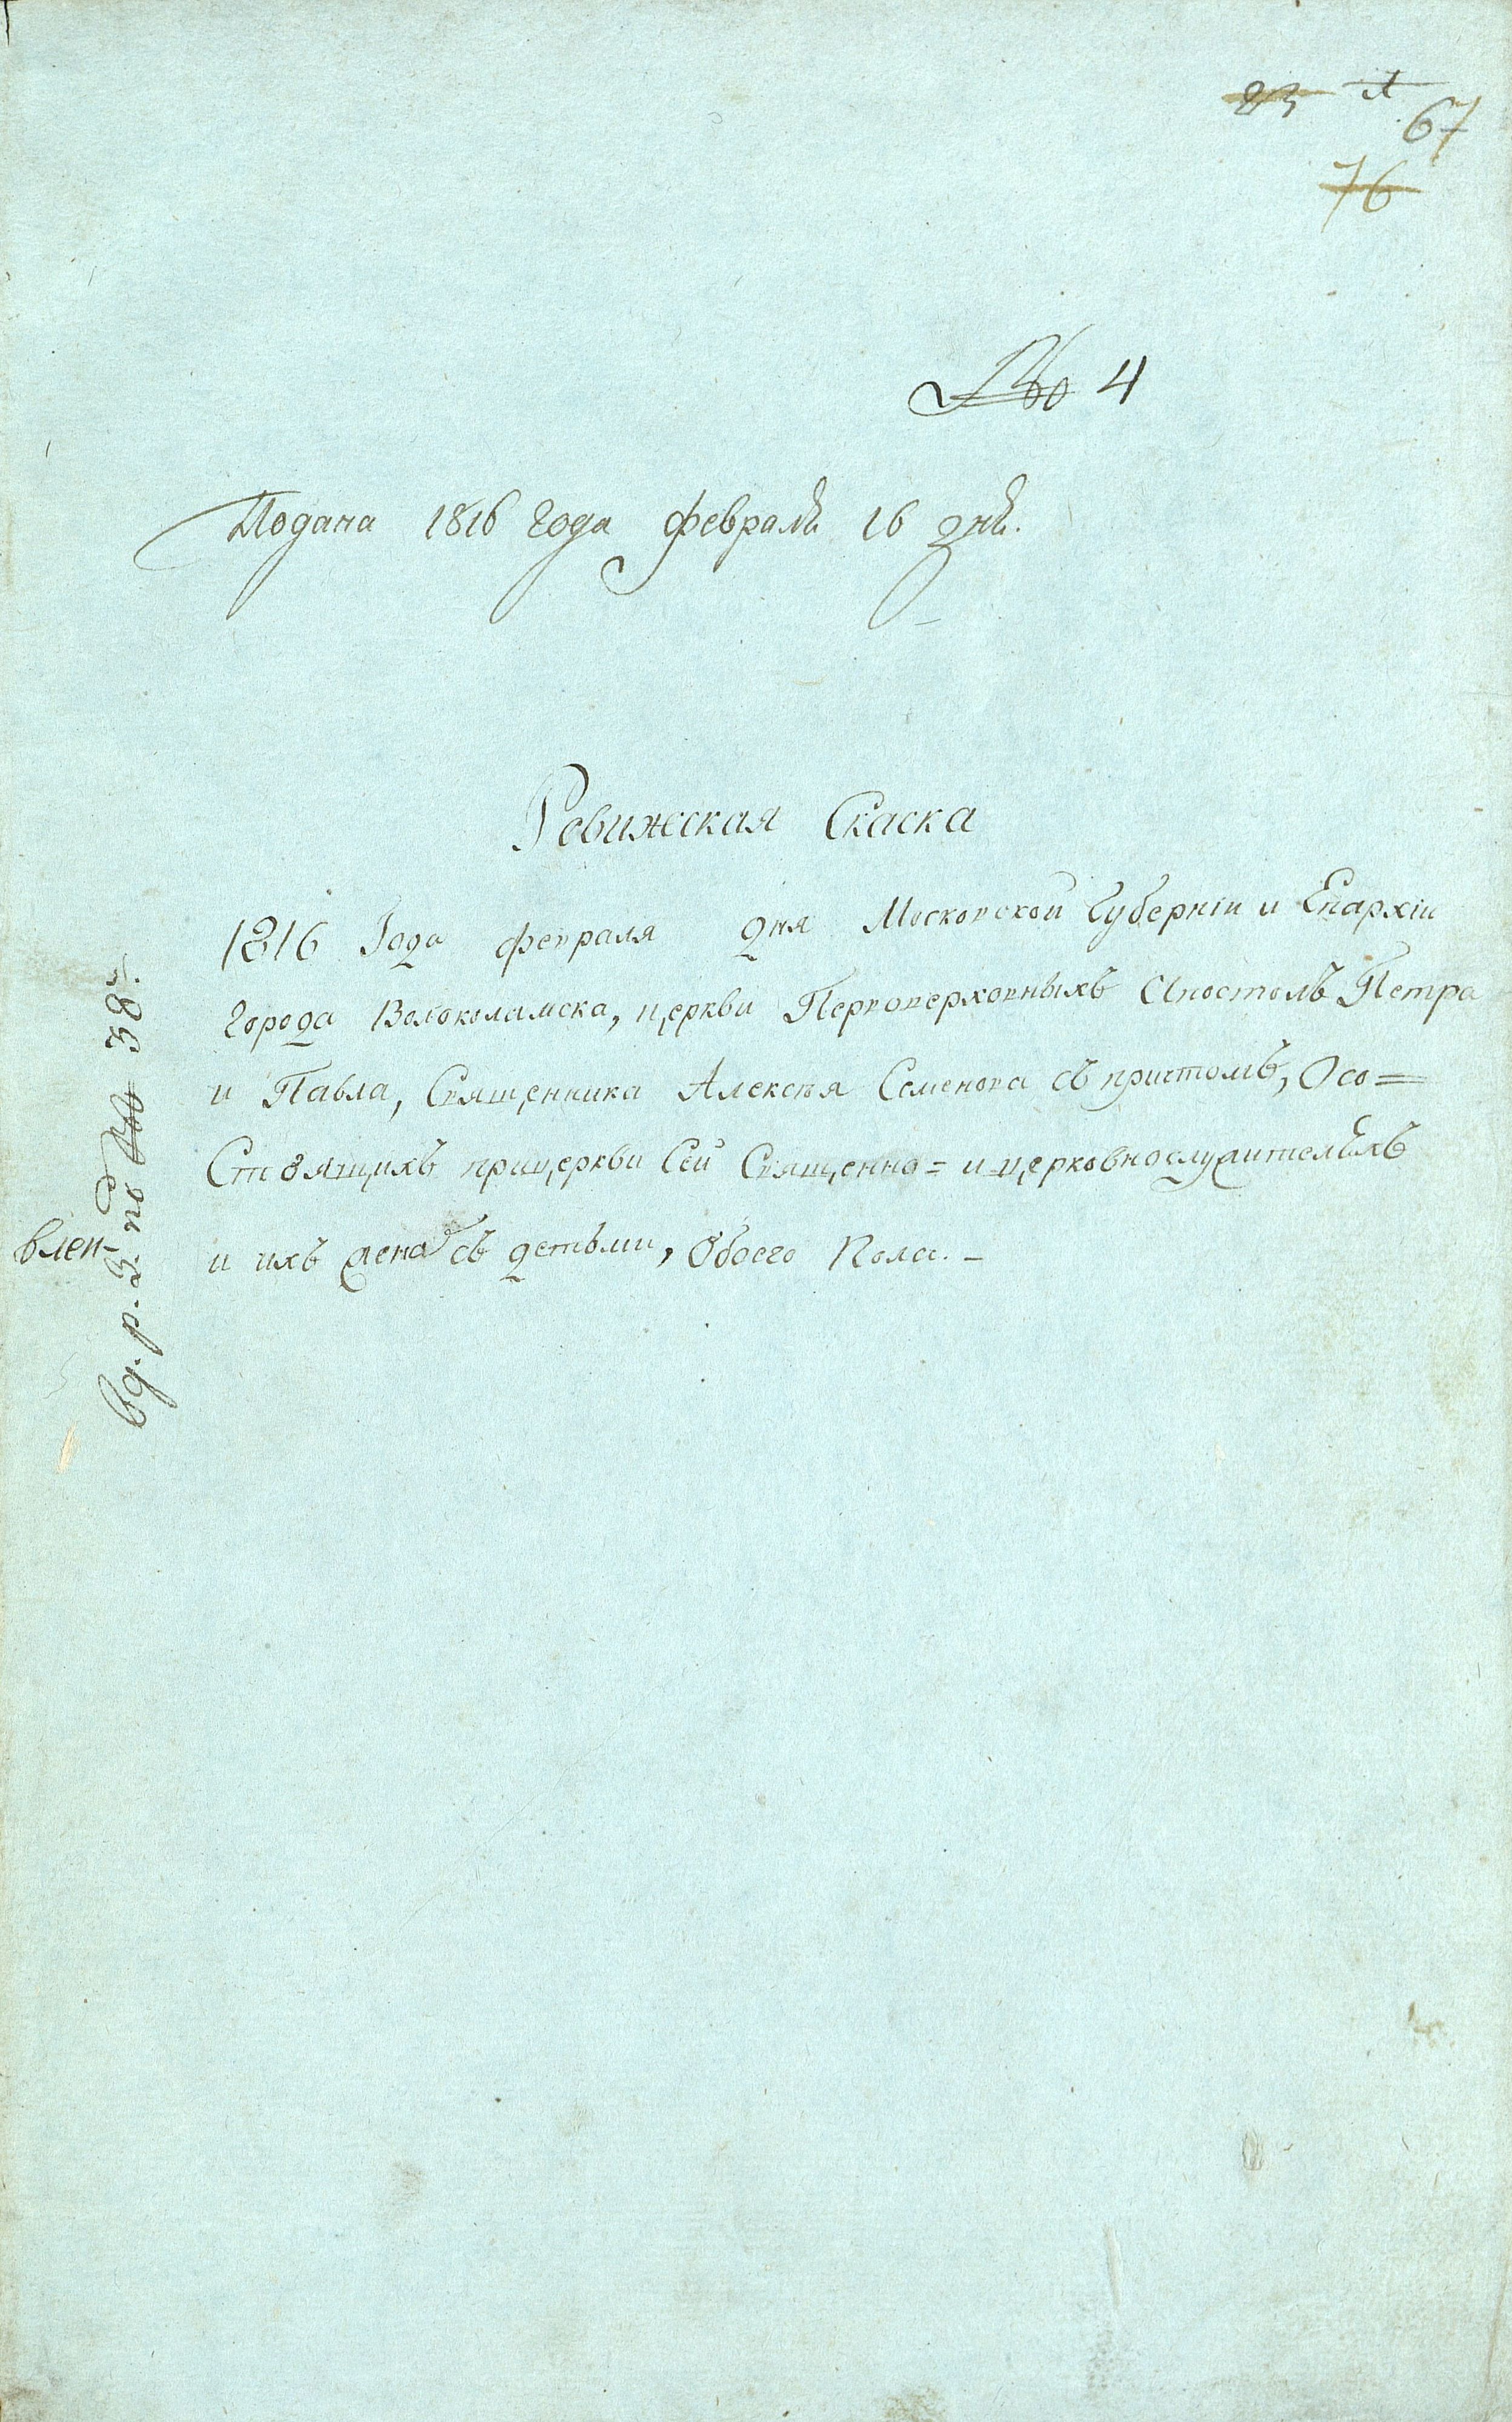 23 л
67
76
№ 4
Подана 1816 года февраля 16 дня.
Ревижская Скаска
1816 Года февраля дня Московской Губерніи и Епархіи
города Волоколамска, церкви Первоверховныхъ Апостолъ Петра
и Павла, Священника Алексѣя Семенова съ причтомъ, Осо=
Стоящихъ прицеркви Сей Священно= и церковнослужителѣхъ
и ихъ женъ съ детьми, Обоего Пола. –
влен-
вд. р. 3. по № 38.